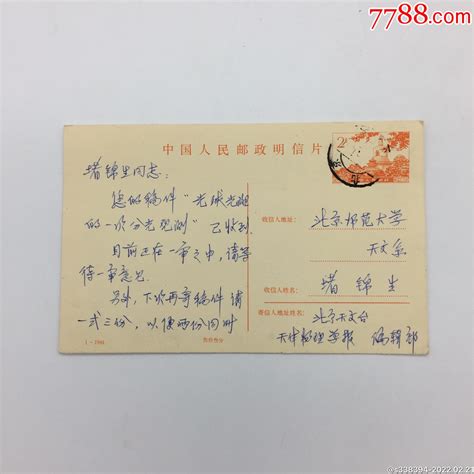 7788.com
中国人民邮政明信片
2分
堵锦生同志：
您的稿件“光球光斑
的一次分光观测”已收到
目前正在一审之中，请等
待一审意见
另外，下次再寄稿件请
一式三份，以便两份同时
1-1984
售价叁分
收信人地址：
北京师范大学
天文系
收信人姓名：
堵锦生
寄信人地址姓名：
北京天文台
天体物理学报 编辑部
@s338394-2022.02.21